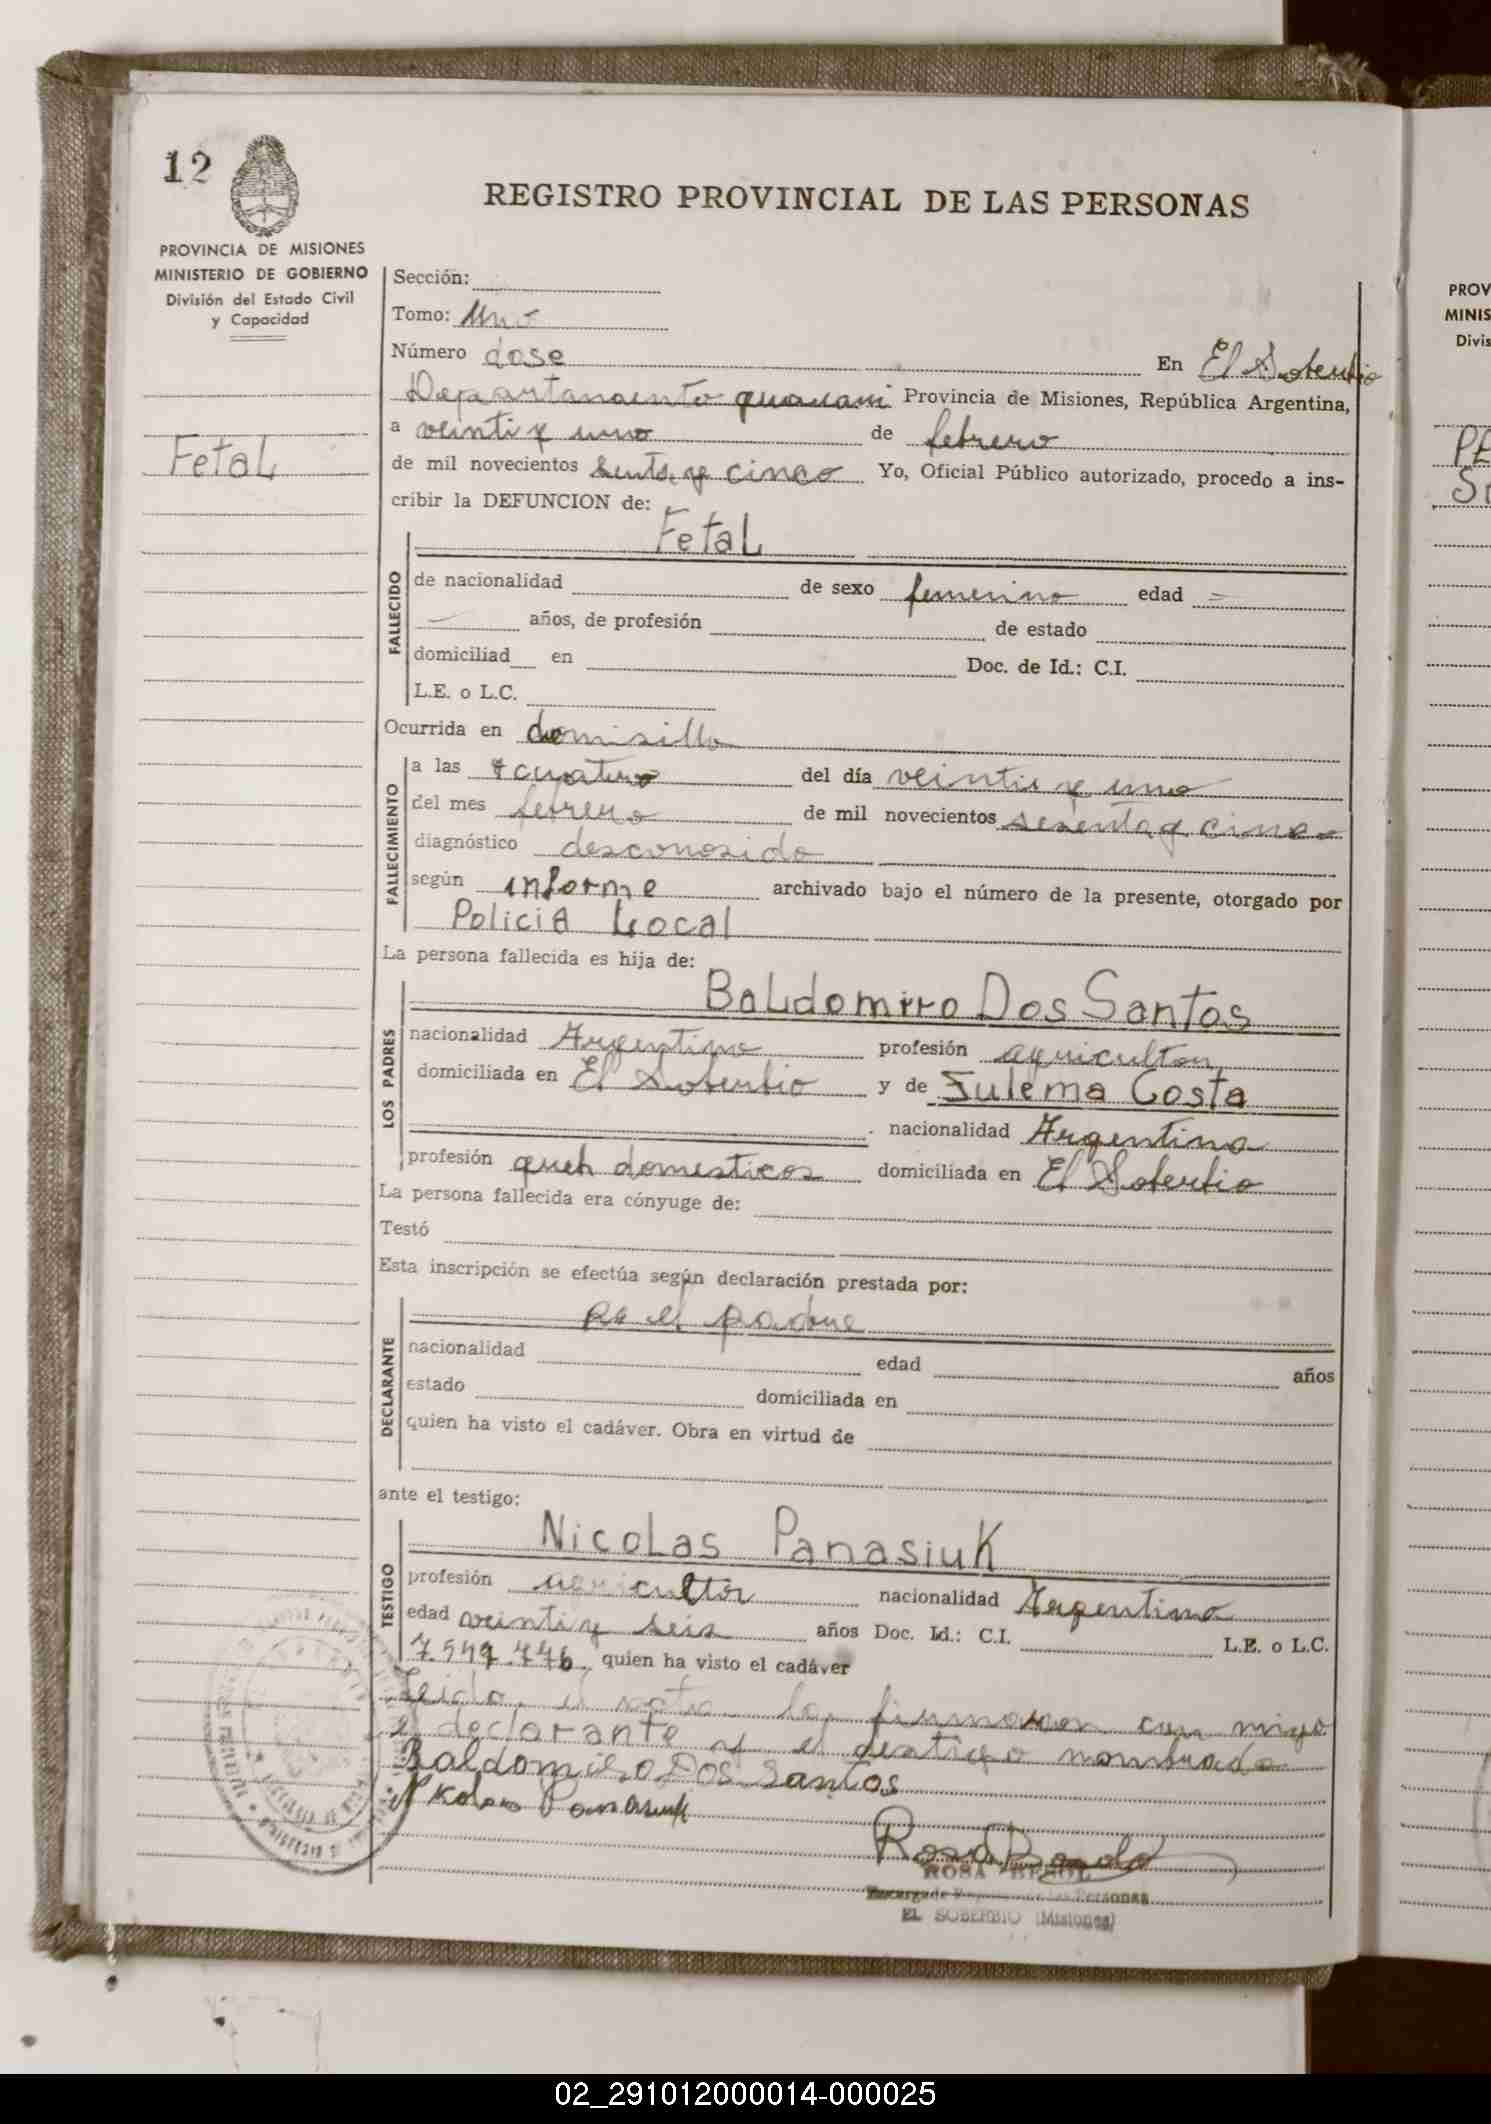 12
REGISTRO PROVINCIAL DE LAS PERSONAS
PROVINCIA DE MISIONES
MINISTERIO DE GOBIERNO
División del Estado Civil
y Capacidad
Fetal
Sección:
Tomo: Uno
Número dose En El Soberbio
Departamento guarani Provincia de Misiones, República Argentina,
a veinti y uno de febrero
de mil novecientos senta y cinco Yo, Oficial Público autorizado, procedo a ins-
cribir la DEFUNCION de:
Fetal
FALLECIDO
de nacionalidad de sexo femenino edad
años, de profesión de estado
domiciliad en Doc. de Id.: C.I.
L.E. o L.C.
Ocurrida en domisillo
FALLECIMIENTO
a las cuatro del día veinti y uno
del mes febrero de mil novecientos sesenta y cinco
diagnóstico desconosido
según informe archivado bajo el número de la presente, otorgado por
Policia Local
La persona fallecida es hija de:
LOS PADRES
Baldomiro Dos Santos
nacionalidad Argentino profesión agricultor
domiciliada en El Soberbio y de Sulema Costa
nacionalidad Argentina
profesión queh domesticos domiciliada en El Soberbio
La persona fallecida era cónyuge de:
Testó
Esta inscripción se efectúa según declaración prestada por:
DECLARANTE
es el padre
nacionalidad edad años
estado domiciliada en
quien ha visto el cadáver. Obra en virtud de
ante el testigo:
TESTIGO
Nicolas Panasiuk
profesión agricultor nacionalidad Argentino
edad veinti y seis años Doc. Id.: C.I. L.E. o L.C.
7.549.746 quien ha visto el cadáver
Leida el acta la firmaron con migo
el declarante y el testigo nombrado
Baldomiro Dos Santos
Nikolas Panasiuk
ROSA
Encargada de las Personas
EL SOBERBIO (Misiones)
PROV
MINIS
Divis
02_291012000014-000025